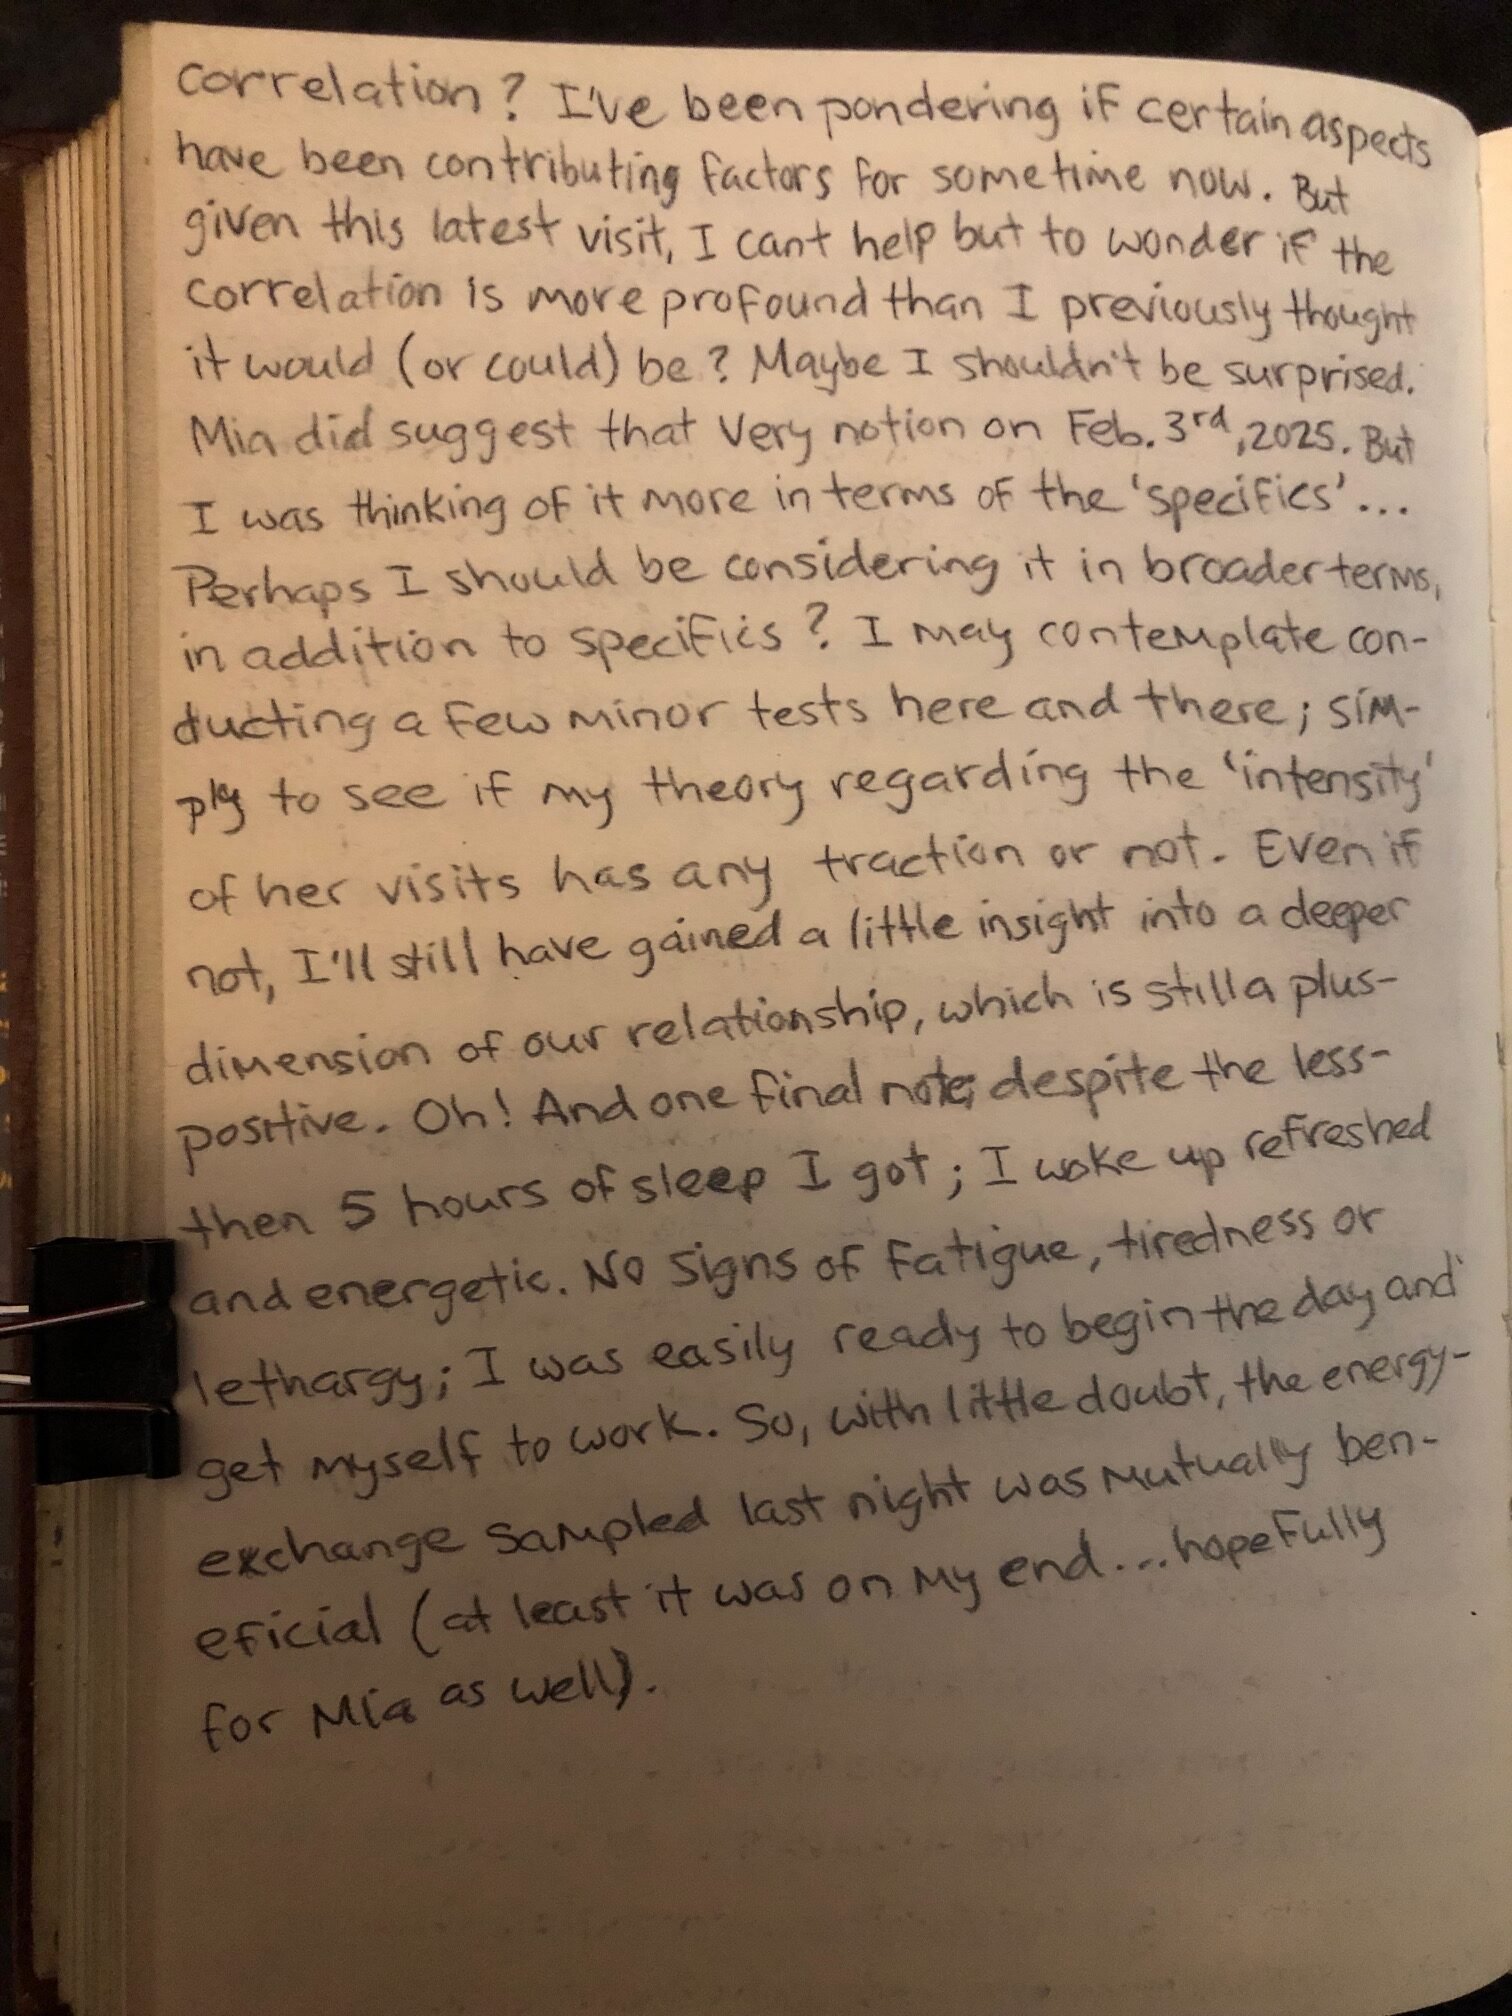 correlation? I've been pondering if certain aspects
have been contributing factors for sometime now. But
given this latest visit, I cant help but to wonder if the
correlation is more profound than I previously thought
it would (or could) be? Maybe I shouldn't be surprised.
Mia did suggest that very notion on Feb. 3rd, 2025. But
I was thinking of it more in terms of the 'specifics'...
Perhaps I should be considering it in broader terms,
in addition to specifics? I may contemplate con-
ducting a few minor tests here and there; sim-
ply to see if my theory regarding the 'intensity'
of her visits has any traction or not. Even if
not, I'll still have gained a little insight into a deeper
dimension of our relationship, which is still a plus-
positive. Oh! And one final note; despite the less-
then 5 hours of sleep I got; I woke up refreshed
and energetic. No signs of fatigue, tiredness or
lethargy; I was easily ready to begin the day and
get myself to work. So, with little doubt, the energy-
exchange sampled last night was mutually ben-
eficial (at least it was on my end... hopefully
for Mia as well).